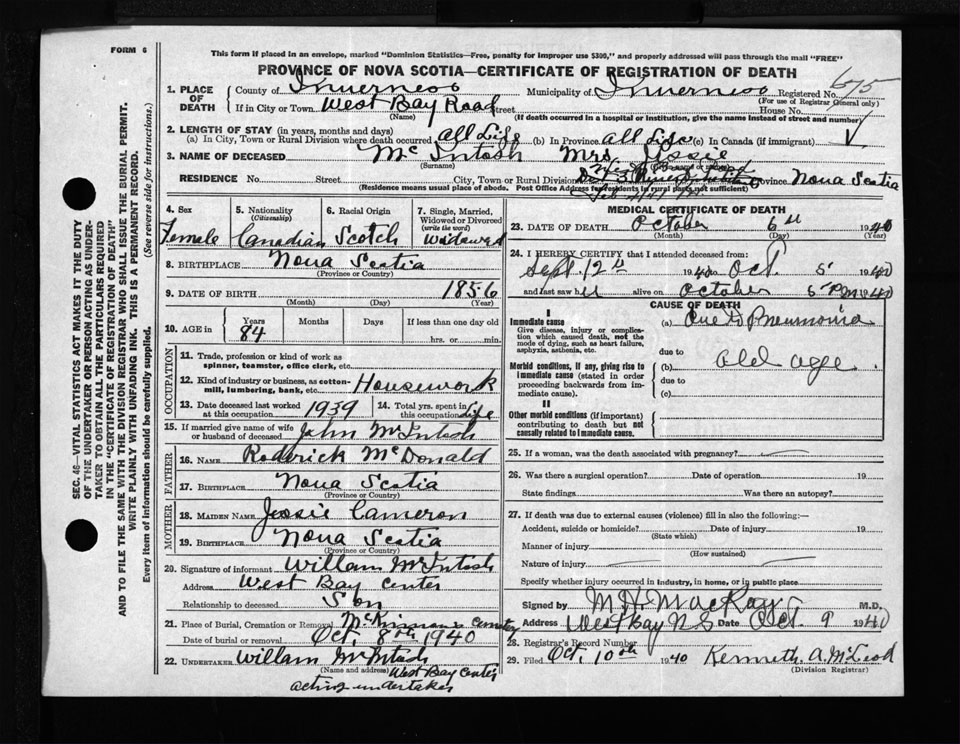 FORM 6
This form if placed in an envelope, marked "Dominion Statistics—Free, penalty for improper use $300," and properly addressed will pass through the mail "FREE"
PROVINCE OF NOVA SCOTIA—CERTIFICATE OF REGISTRATION OF DEATH
675
1. PLACE OF DEATH County of Inverness Municipality of Inverness Registered No.
(For use of Registrar General only)
If in City or Town West Bay Road Street House No.
(Name) (If death occurred in a hospital or institution, give the name instead of street and number)
2. LENGTH OF STAY (in years, months and days)
(a) In City, Town or Rural Division where death occurred all Life (b) In Province all Life (c) In Canada (if immigrant)
3. NAME OF DECEASED McIntosh Mrs Jessie
(Surname)
RESIDENCE No. Street City, Town or Rural Division Province Nova Scotia
(Residence means usual place of abode. Post Office Address for residents in rural parts not sufficient)
4. Sex Female
5. Nationality (Citizenship) Canadian
6. Racial Origin Scotch
7. Single, Married, Widowed or Divorced (write the word) Widowed
8. BIRTHPLACE Nova Scotia
(Province or Country)
9. DATE OF BIRTH 1856
(Month) (Day) (Year)
10. AGE in Years 84 Months Days If less than one day old
hrs. or min.
OCCUPATION
11. Trade, profession or kind of work as spinner, teamster, office clerk, etc.
12. Kind of industry or business, as cotton-mill, lumbering, bank, etc. Housework
13. Date deceased last worked at this occupation 1939
14. Total yrs. spent in this occupation Life
15. If married give name of wife or husband of deceased John McIntosh
FATHER
16. NAME Roderick McDonald
17. BIRTHPLACE Nova Scotia
(Province or Country)
MOTHER
18. MAIDEN NAME Jessie Cameron
19. BIRTHPLACE Nova Scotia
(Province or Country)
20. Signature of informant William McIntosh
Address West Bay Center
Relationship to deceased Son
21. Place of Burial, Cremation or Removal McKinnons Cemetery
Date of burial or removal Oct. 8th 1940
22. UNDERTAKER William McIntosh
(Name and address) West Bay Center
acting undertaker
MEDICAL CERTIFICATE OF DEATH
23. DATE OF DEATH October 6th 1940
(Month) (Day) (Year)
24. I HEREBY CERTIFY that I attended deceased from:
Sept. 12th 1940 to Oct. 5 1940
and last saw h er alive on October 5 PM 1940
CAUSE OF DEATH
I
Immediate cause
Give disease, injury or complication which caused death, not the mode of dying, such as heart failure, asphyxia, asthenia, etc.
(a) Pneumonia
due to
Morbid conditions, if any, giving rise to immediate cause (stated in order proceeding backwards from immediate cause).
(b) old age
due to
(c)
II
Other morbid conditions (if important) contributing to death but not causally related to immediate cause.
25. If a woman, was the death associated with pregnancy?
26. Was there a surgical operation? Date of operation 19
State findings Was there an autopsy?
27. If death was due to external causes (violence) fill in also the following:—
Accident, suicide or homicide? Date of injury 19
(State which)
Manner of injury
(How sustained)
Nature of injury
Specify whether injury occurred in industry, in home, or in public place
Signed by M H MacKay M.D.
Address West Bay N S Date Oct. 9 1940
28. Registrar's Record Number
29. Filed Oct. 10th 1940 Kenneth A. McLeod
(Division Registrar)
SEC. 46—VITAL STATISTICS ACT MAKES IT THE DUTY
OF THE UNDERTAKER OR PERSON ACTING AS UNDER-
TAKER TO OBTAIN ALL THE PARTICULARS REQUIRED
IN THE "CERTIFICATE OF REGISTRATION OF DEATH"
AND TO FILE THE SAME WITH THE DIVISION REGISTRAR WHO SHALL ISSUE THE BURIAL PERMIT.
WRITE PLAINLY WITH UNFADING INK. THIS IS A PERMANENT RECORD.
Every item of information should be carefully supplied. (See reverse side for instructions.)